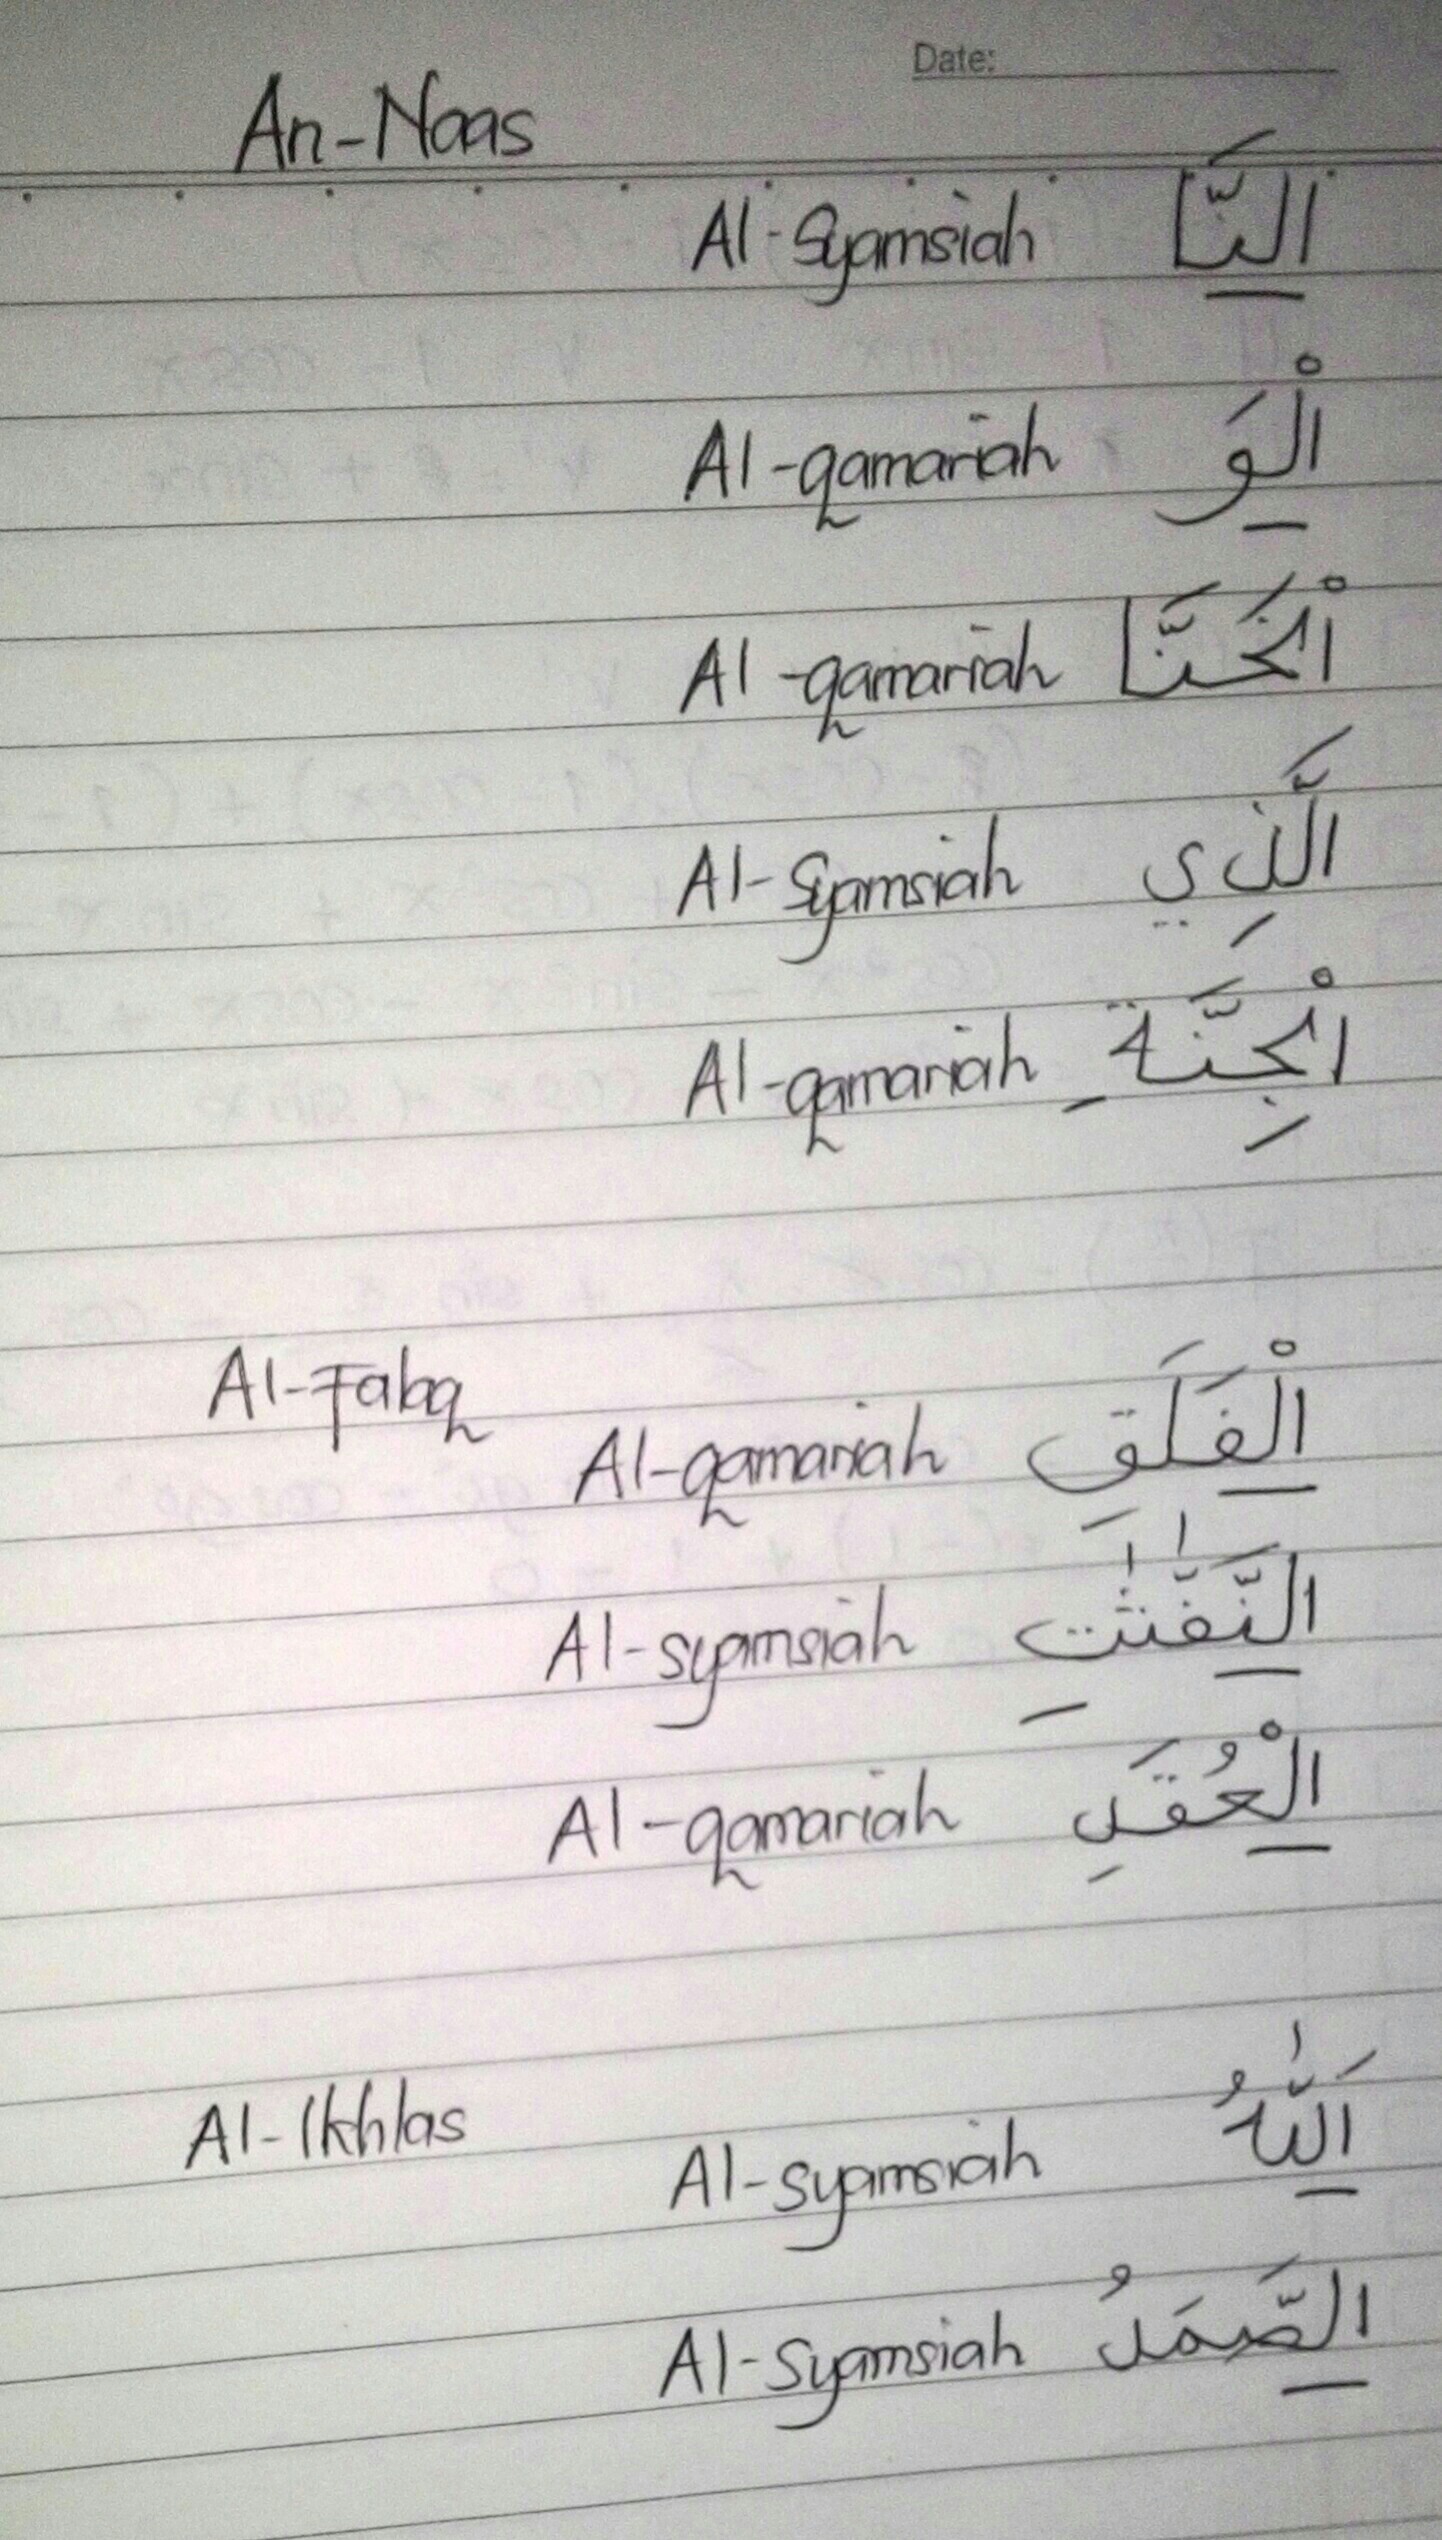 Date:
An-Naas
Al-Syamsiah النَّا
Al-qamariah الْوَ
Al-qamariah الْخَنَّا
Al-Syamsiah الَّذِي
Al-qamariah الْجِنَّةِ
Al-Falaq
Al-qamariah الْفَلَقِ
Al-syamsiah النَّفّٰثٰتِ
Al-qamariah الْعُقَدِ
Al-Ikhlas
Al-syamsiah اَللّٰهُ
Al-Syamsiah الصَّمَدُ